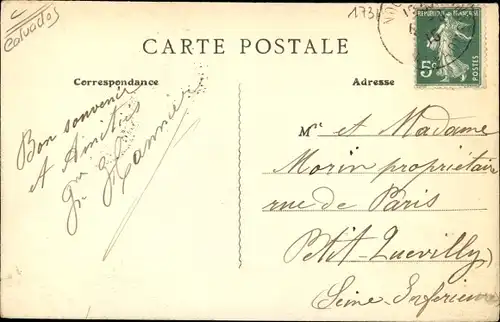 Calvados
173
REPUBLIQUE FRANÇAISE
5c
POSTES
CARTE POSTALE
Correspondance
Adresse
Bon souvenir
et Amitiés
Mr et Madame
Morin propriétaire
rue de Paris
Petit-Quevilly
Seine-Inférieure